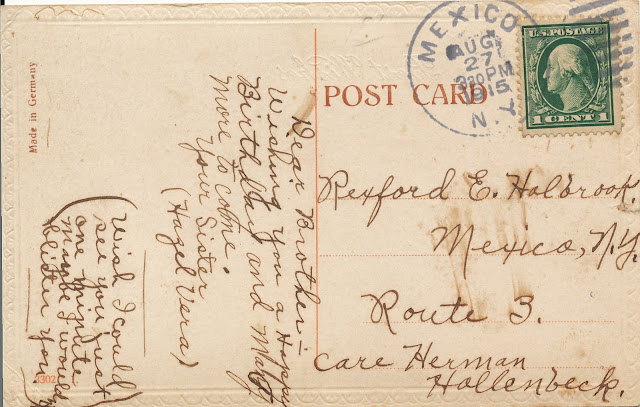 Made in Germany
POST CARD
MEXICO
AUG
27
330PM
1915
N.Y.
U.S. POSTAGE
1 CENT 1
Dear Brother—
Wishing you a Happy
Birthday and Many
more to come.
Your Sister
(Hazel Vera)
(Wish I could
see you just
one minute
maybe I would
blister you)
Rexford E. Holbrook.
Mexico, N.Y.
Route 3.
Care Herman
Hollenbeck.